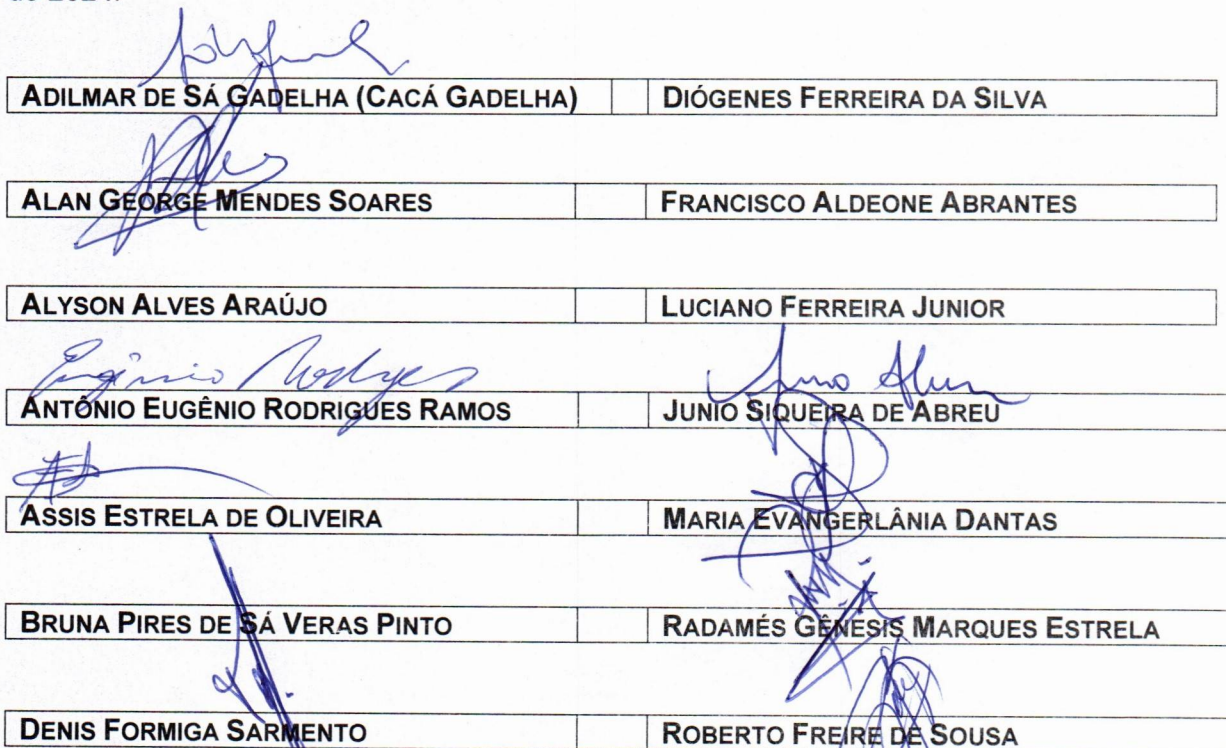 ADILMAR DE SÁ GADELHA (CACÁ GADELHA) DIÓGENES FERREIRA DA SILVA
ALAN GEORGE MENDES SOARES FRANCISCO ALDEONE ABRANTES
ALYSON ALVES ARAÚJO LUCIANO FERREIRA JUNIOR
Eugênio Rodrigues
ANTÔNIO EUGÊNIO RODRIGUES RAMOS JUNIO SIQUEIRA DE ABREU
ASSIS ESTRELA DE OLIVEIRA MARIA EVANGERLÂNIA DANTAS
BRUNA PIRES DE SÁ VERAS PINTO RADAMÉS GÊNESIS MARQUES ESTRELA
DENIS FORMIGA SARMENTO ROBERTO FREIRE DE SOUSA